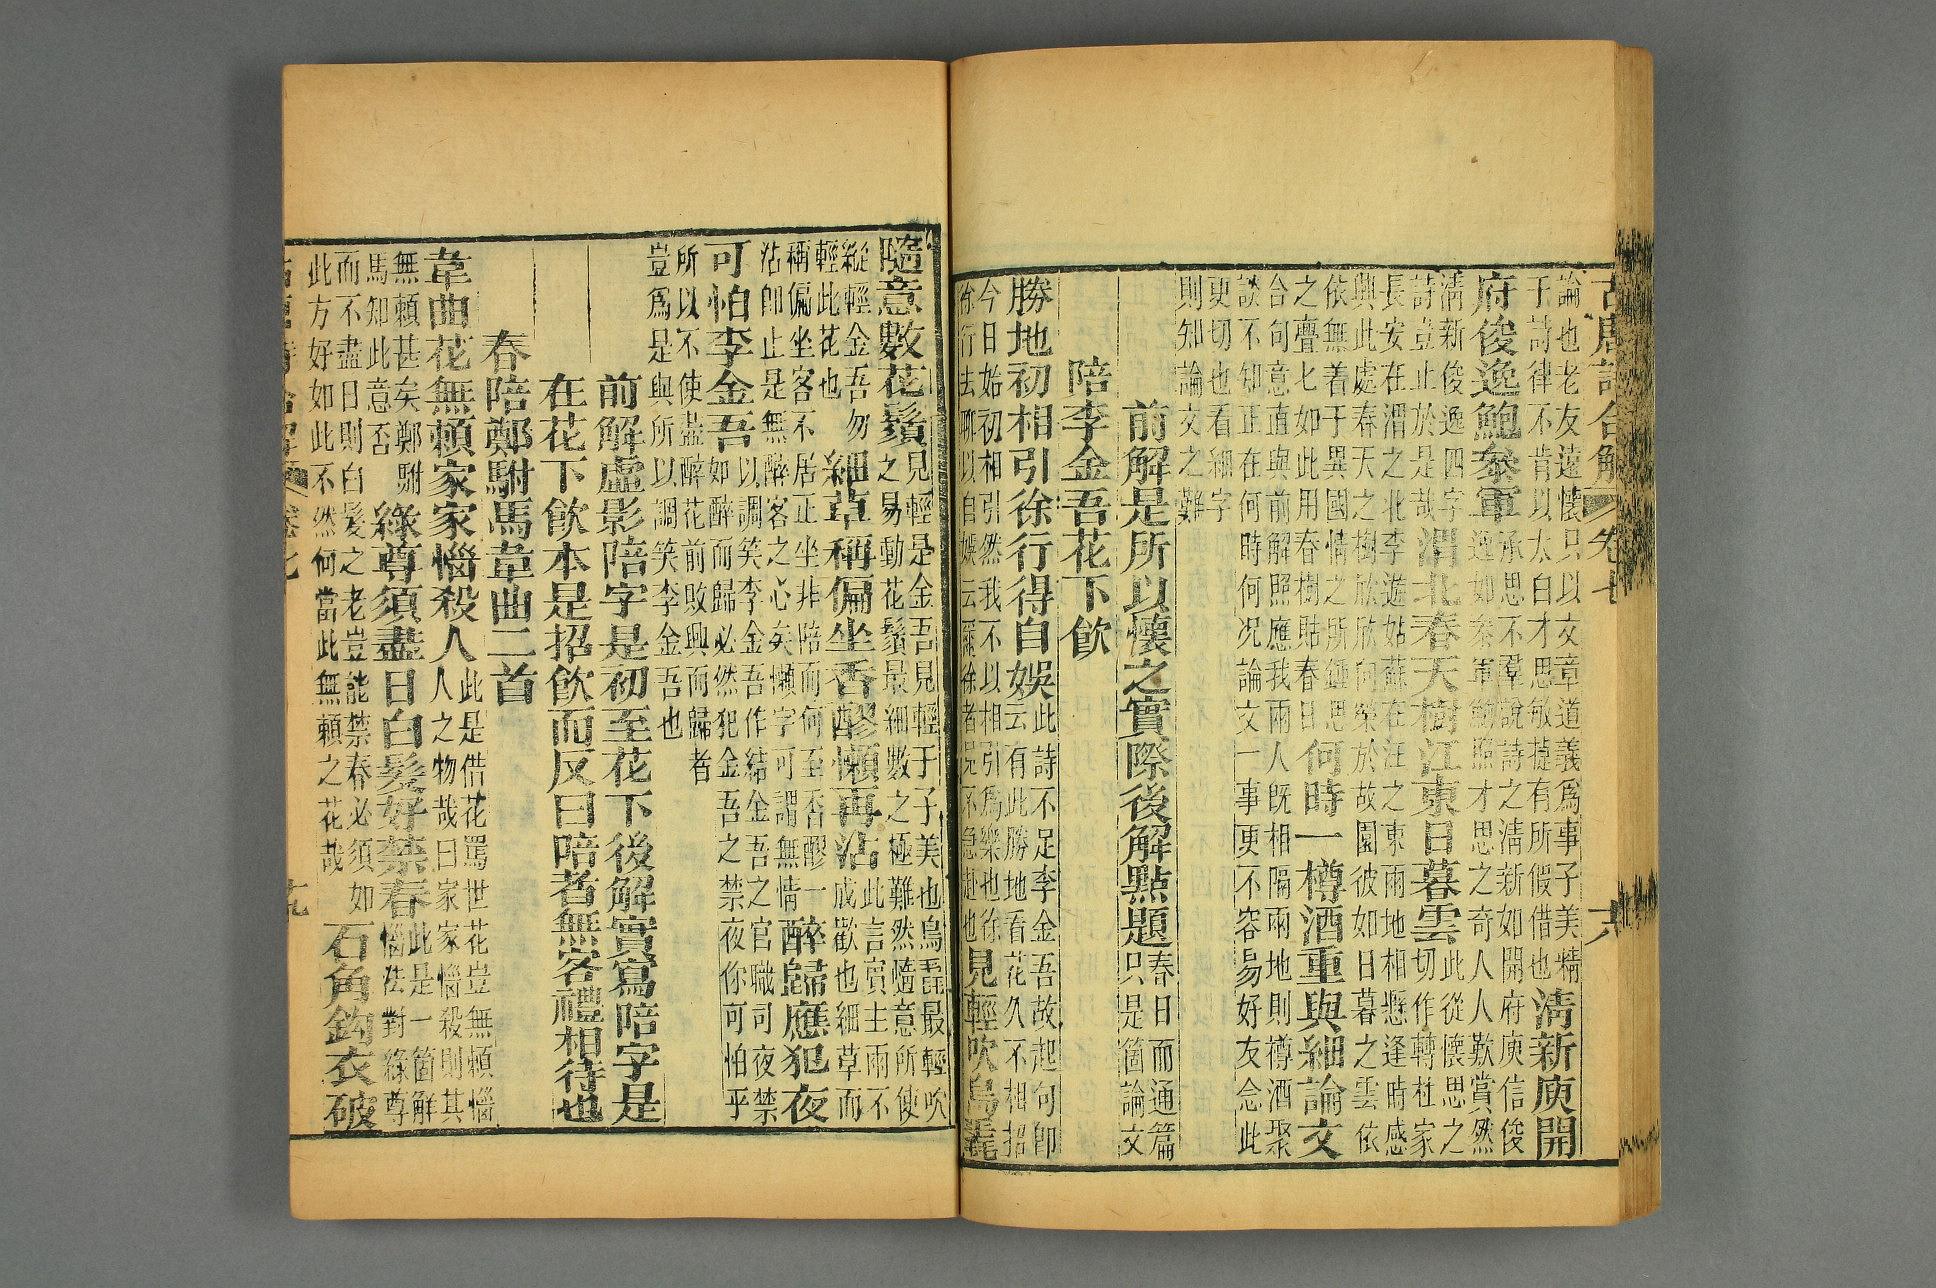 古唐詩合解 卷七 六
論也老友遠懷只以文章道義爲事子美精
于詩律不肯以太白才思敏㨗有所假借也清新庾開
府俊逸鮑參軍
承思不羣說詩之清新如開府庾信俊
逸如參軍鮑照才思之奇人人歎賞然
清新俊逸四字
詩豈止於是哉渭北春天樹江東日暮雲
此從懷思之
切作轉杜家
長安在渭之北李遊姑蘇在江之東兩地相懸逢時感
興此處春天之樹欣欣向榮於故園彼如日暮之雲依
依無着于異國情之所鍾思
之疊七如此用春樹貼春日何時一樽酒重與細論文
合句意直與前解照應我兩人既相隔兩地則樽酒聚
談不知正在何時何况論文一事更不容易好友念此
更切也看細字
則知論文之難
前解是所以懷之實際後解點題
春日而通篇
只是箇論文
陪李金吾花下飲
勝地初相引徐行得自娛
此詩不足李金吾故起句即
云有此勝地看花久不相招
今日始初相引然我不以相引爲樂也徐
徐行去聊以自娛云爾徐者況不急赴也見輕吹鳥毳
隨意數花鬚
見輕是金吾見輕于子美也鳥毳最輕吹
之易動花鬚最細數之極難然隨意所使
縱輕金吾勿
輕此花也細草稱偏坐香醪懶再沽
此言賓主兩不
成歡也細草而
稱偏坐客不居正坐非陪而何至否醪一
沽即止是無醉客之心矣懶字可謂無情醉歸應犯夜
可怕李金吾
以調笑李金吾作結金吾之官職司夜禁
如醉而歸必然犯金吾之禁夜你可怕乎
所以不使盡醉花前敗興而歸者
豈爲是與所以調笑李金吾也
前解虛影陪字是初至花下後解實寫陪字是
在花下飲本是招飲而反曰陪者無客禮相待也
春陪鄭駙馬韋曲二首
韋曲花無賴家家惱殺人
此是借花罵世花豈無賴惱
人之物哉曰家家惱殺則其
無賴甚矣鄭駙
馬知此意否綠尊須盡日白髮好禁春
此是一箇解
惱法對綠尊
而不盡日則白髮之老豈能禁春必須如
此方好如此不然何當此無賴之花哉石角鈎衣破
古唐詩合解 卷七 十九